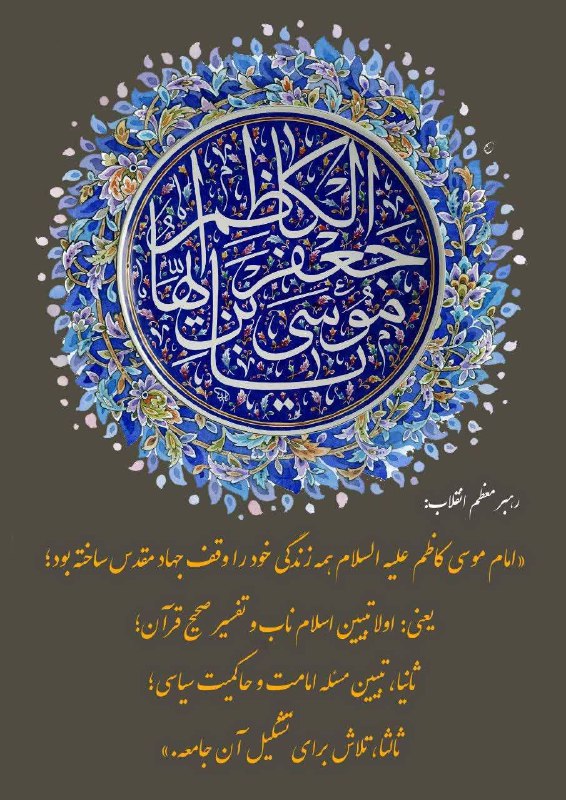 یا موسی بن جعفر ایها الکاظم
رهبر معظم انقلاب:
«امام موسی کاظم علیه السلام همه زندگی خود را وقف جهاد مقدس ساخته بود؛
یعنی: اولا تبیین اسلام ناب و تفسیر صحیح قرآن؛
ثانیا، تبیین مسئله امامت و حاکمیت سیاسی؛
ثالثا، تلاش برای تشکیل آن جامعه.»